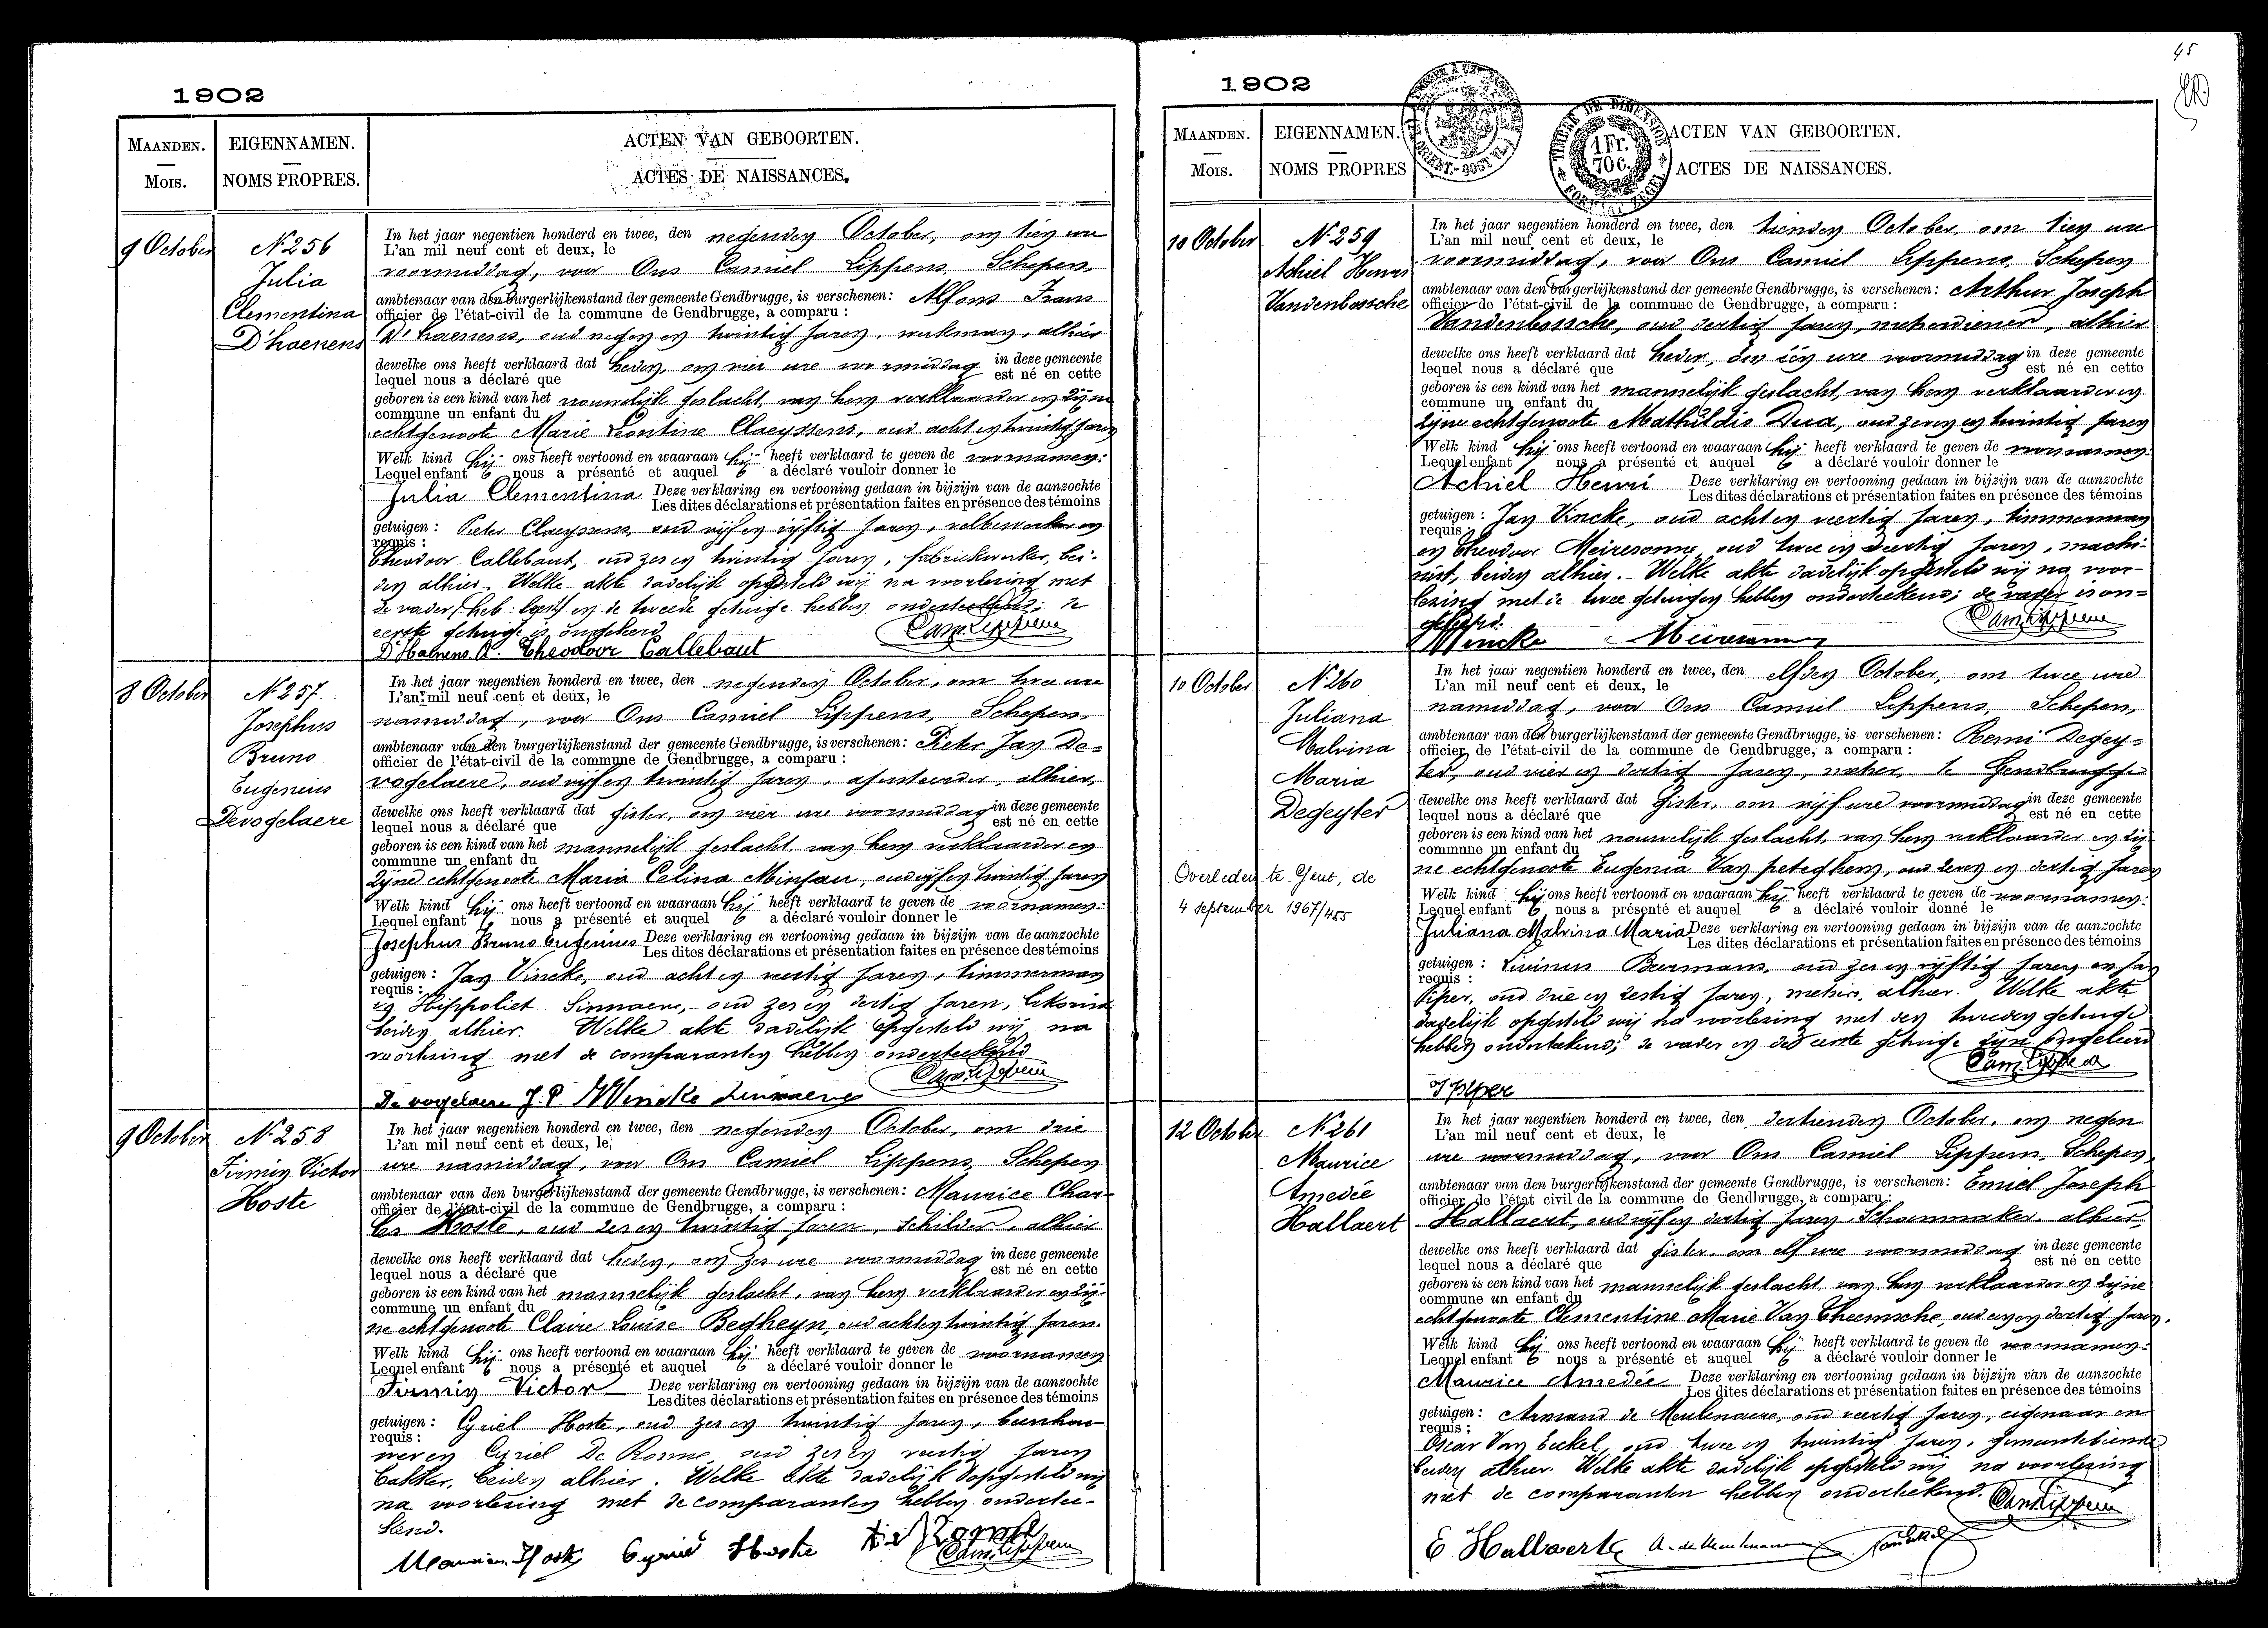 1902
MAANDEN. EIGENNAMEN. ACTEN VAN GEBOORTEN.
MOIS. NOMS PROPRES. ACTES DE NAISSANCES.
9 October
N° 256
Julia
Clementina
D'haenens
In het jaar negentien honderd en twee, den negenden October, om tien ure
L'an mil neuf cent et deux, le
voormiddag, voor Ons Camiel Lippens, Schepen,
ambtenaar van den burgerlijkenstand der gemeente Gendbrugge, is verschenen: Alfons Frans
officier de l'état-civil de la commune de Gendbrugge, a comparu :
D'haenens, oud negen en twintig jaren, werkman, alhier
dewelke ons heeft verklaard dat heden, om vier ure voormiddag in deze gemeente
lequel nous a déclaré que est né en cette
geboren is een kind van het vrouwelijk geslacht, van hem verklaarder en zijne
commune un enfant du
echtgenoote Marie Leontine Claeyssens, oud acht en twintig jaren
Welk kind hij ons heeft vertoond en waaraan hij heeft verklaard te geven de voornamen:
Lequel enfant nous a présenté et auquel a déclaré vouloir donner le
Julia Clementina. Deze verklaring en vertooning gedaan in bijzijn van de aanzochte
Les dites déclarations et présentation faites en présence des témoins
getuigen : Pieter Claeyssens, oud vijf en vijftig jaren, velbewerker en
requis :
Theodoor Callebaut, oud zes en twintig jaren, fabriekwerker, bei-
den alhier. Welke akte dadelijk opgesteld wij na voorlezing met
de vader en de tweede getuige hebben onderteekend; de
eerste getuige is ongeleerd
Cam. Lippens
D'Haenens A. Theodoor Callebaut
8 October
N° 257
Josephus
Bruno
Eugenius
Devogelaere
In het jaar negentien honderd en twee, den negenden October, om twee ure
L'an mil neuf cent et deux, le
namiddag, voor Ons Camiel Lippens, Schepen,
ambtenaar van den burgerlijkenstand der gemeente Gendbrugge, is verschenen: Pieter Jan De-
officier de l'état-civil de la commune de Gendbrugge, a comparu :
vogelaere, oud vijf en twintig jaren, alhier,
dewelke ons heeft verklaard dat gister, om vier ure voormiddag in deze gemeente
lequel nous a déclaré que est né en cette
geboren is een kind van het mannelijk geslacht van hem verklaarder en
commune un enfant du
zijne echtgenoote Maria Celina Minjau, oud vijf en twintig jaren
Welk kind hij ons heeft vertoond en waaraan hij heeft verklaard te geven de voornamen:
Lequel enfant nous a présenté et auquel a déclaré vouloir donner le
Josephus Bruno Eugenius Deze verklaring en vertooning gedaan in bijzijn van de aanzochte
Les dites déclarations et présentation faites en présence des témoins
getuigen : Jan Vincke, oud acht en veertig jaren, timmerman
requis :
en Hippoliet Sinnaeve, oud zes en dertig jaren,
beiden alhier. Welke akte dadelijk opgesteld wij na
voorlezing met de comparanten hebben onderteekend
Cam. Lippens
De vogelaere J. P. Vincke Sinnaeve
9 October
N° 258
Firmin Victor
Hoste
In het jaar negentien honderd en twee, den negenden October, om drie
L'an mil neuf cent et deux, le
ure namiddag, voor Ons Camiel Lippens, Schepen
ambtenaar van den burgerlijkenstand der gemeente Gendbrugge, is verschenen: Maurice Char-
officier de l'état-civil de la commune de Gendbrugge, a comparu :
les Hoste, oud zes en twintig jaren, schilder, alhier
dewelke ons heeft verklaard dat heden, om zes ure voormiddag in deze gemeente
lequel nous a déclaré que est né en cette
geboren is een kind van het mannelijk geslacht, van hem verklaarder en zij-
commune un enfant du
ne echtgenoote Claire Louise Begheyn, oud acht en twintig jaren.
Welk kind hij ons heeft vertoond en waaraan hij heeft verklaard te geven de voornamen
Lequel enfant nous a présenté et auquel a déclaré vouloir donner le
Firmin Victor Deze verklaring en vertooning gedaan in bijzijn van de aanzochte
Les dites déclarations et présentation faites en présence des témoins
getuigen : Cyriel Hoste, oud zes en twintig jaren, beenhou-
requis :
wer en Cyriel De Ronne, oud zes en veertig jaren
bakker, beiden alhier. Welke akte dadelijk opgesteld wij
na voorlezing met de comparanten hebben ondertee-
kend.
Maurice Hoste Cyriel Hoste
Cam. Lippens
45
1902
TIMBRE DE DIMENSION
1 Fr. 70 c.
FORMAAT ZEGEL
MAANDEN. EIGENNAMEN. ACTEN VAN GEBOORTEN.
MOIS. NOMS PROPRES ACTES DE NAISSANCES.
10 October
N° 259
Achiel Henri
Vandenbossche
In het jaar negentien honderd en twee, den tienden October, om tien ure
L'an mil neuf cent et deux, le
voormiddag, voor Ons Camiel Lippens, Schepen
ambtenaar van den burgerlijkenstand der gemeente Gendbrugge, is verschenen: Arthur Joseph
officier de l'état-civil de la commune de Gendbrugge, a comparu :
Vandenbossche, oud dertig jaren, metserdiener, alhier
dewelke ons heeft verklaard dat heden, ten één ure voormiddag in deze gemeente
lequel nous a déclaré que est né en cette
geboren is een kind van het mannelijk geslacht, van hem verklaarder en
commune un enfant du
zijne echtgenoote Mathildis Dua, oud zeven en twintig jaren
Welk kind hij ons heeft vertoond en waaraan hij heeft verklaard te geven de voornamen:
Lequel enfant nous a présenté et auquel a déclaré vouloir donner le
Achiel Henri Deze verklaring en vertooning gedaan in bijzijn van de aanzochte
Les dites déclarations et présentation faites en présence des témoins
getuigen : Jan Vincke, oud acht en veertig jaren, timmerman
requis :
en Theodoor Meiresonne, oud twee en veertig jaren, machi-
nist, beiden alhier. Welke akte dadelijk opgesteld wij na voor-
lezing met de twee getuigen hebben onderteekend; de vader is on-
geleerd.
Cam. Lippens
Vincke Meiresonne
10 October
N° 260
Juliana
Malvina
Maria
Degeyter
Overleden te Gent, de
4 september 1967/455
In het jaar negentien honderd en twee, den elfden October, om twee ure
L'an mil neuf cent et deux, le
namiddag, voor Ons Camiel Lippens, Schepen,
ambtenaar van den burgerlijkenstand der gemeente Gendbrugge, is verschenen: Remi Degey-
officier de l'état-civil de la commune de Gendbrugge, a comparu :
ter, oud vier en dertig jaren, metser, te Gendbrugge
dewelke ons heeft verklaard dat gister, om vijf ure voormiddag in deze gemeente
lequel nous a déclaré que est né en cette
geboren is een kind van het vrouwelijk geslacht, van hem verklaarder en zij-
commune un enfant du
ne echtgenoote Eugenia Van peteghem, oud zeven en dertig jaren
Welk kind hij ons heeft vertoond en waaraan hij heeft verklaard te geven de voornamen:
Lequel enfant nous a présenté et auquel a déclaré vouloir donné le
Juliana Malvina Maria Deze verklaring en vertooning gedaan in bijzijn van de aanzochte
Les dites déclarations et présentation faites en présence des témoins
getuigen : Livinus Beermans, oud zes en vijftig jaren en Jan
requis :
Piper, oud drie en zestig jaren, metsers, alhier. Welke akte
dadelijk opgesteld wij na voorlezing met den tweeden getuige
hebben onderteekend; de vader en de eerste getuige zijn ongeleerd
Cam. Lippens
J piper
12 October
N° 261
Maurice
Amedée
Hallaert
In het jaar negentien honderd en twee, den dertienden October, om negen
L'an mil neuf cent et deux, le
ure voormiddag, voor Ons Camiel Lippens, Schepen,
ambtenaar van den burgerlijkenstand der gemeente Gendbrugge, is verschenen: Emiel Joseph
officier de l'état civil de la commune de Gendbrugge, a comparu :
Hallaert, oud vijf en dertig jaren, Schoenmaker, alhier,
dewelke ons heeft verklaard dat gister, om elf ure voormiddag in deze gemeente
lequel nous a déclaré que est né en cette
geboren is een kind van het mannelijk geslacht, van hem verklaarder en zijne
commune un enfant du
echtgenoote Clementine Marie Van Theemsche, oud een en dertig jaren.
Welk kind hij ons heeft vertoond en waaraan hij heeft verklaard te geven de voornamen:
Lequel enfant nous a présenté et auquel a déclaré vouloir donner le
Maurice Amedée Deze verklaring en vertooning gedaan in bijzijn van de aanzochte
Les dites déclarations et présentation faites en présence des témoins
getuigen : Armand de Meulenaere, oud veertig jaren, eigenaar en
requis :
Oscar Van Eeckel, oud twee en twintig jaren, gemeentebiende
beiden alhier. Welke akte dadelijk opgesteld wij na voorlezing
met de comparanten hebben onderteekend.
Cam. Lippens
E. Hallaert A. de Meulenaere